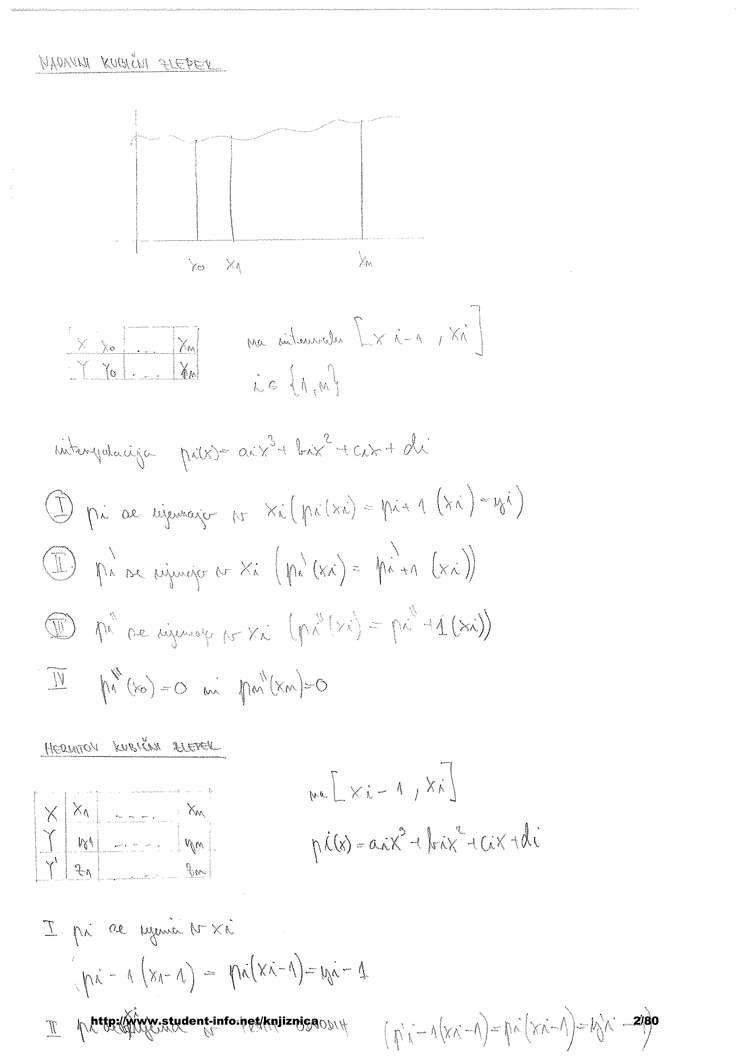 NARAVNI KUBIČNI ZLEPEK
x0 x1 xn
X x0 ... xn
Y y0 ... yn
na intervalu [xi-1, xi]
i ∈ {1,n}
interpolacija pi(x)= aix³+ bix²+cix+ di
I pi se ujemajo v xi (pi(xi) = pi+1 (xi)=yi)
II pi' se ujemajo v xi (pi'(xi) = pi'+1 (xi))
III pi'' se ujemajo v xi (pi''(xi) = pi''+1(xi))
IV p1''(x0)=0 in pn''(xn)=0
HERMITOV KUBIČNI ZLEPEK
X x1 .... xn
Y y1 ..... yn
Y' z1 ..... zn
na [xi-1, xi]
pi(x)=aix³+bix²+cix+di
I pi se ujema v xi
pi-1(xi-1) = pi(xi-1)=yi-1
II pi ujema v xi v ODVODIH (p'i-1(xi-1)=p'i(xi-1)=y'i-1)
http://www.student-info.net/knjiznica
2/80